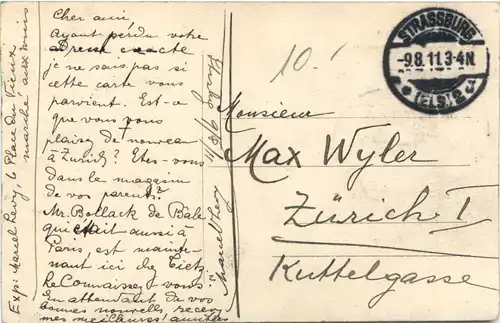 Cher ami,
Ayant perdu votre
adresse exacte
je ne sais pas si
cette carte vous
parvient. Est-ce
que vous vous
plaisez de nouveau
à Zurich? Etes-vous
dans le magasin
de vos parents?
Mr. Bollack de Bâle
qui était aussi à
Paris, est mainte-
nant ici chez Tietz.
Le Connaissez-vous?
En attendant de vos
bonnes nouvelles recev.
mes meilleures amitiés
Marcel Levy
Strasbg 9/8/11
Exp: Marcel Levy, 6 Place du Vieux
marché aux vins
10.
STRASSBURG
-9.8.11.3-4N
(ELS.) 2
Monsieur
Max Wyler
Zürich I
Kuttelgasse